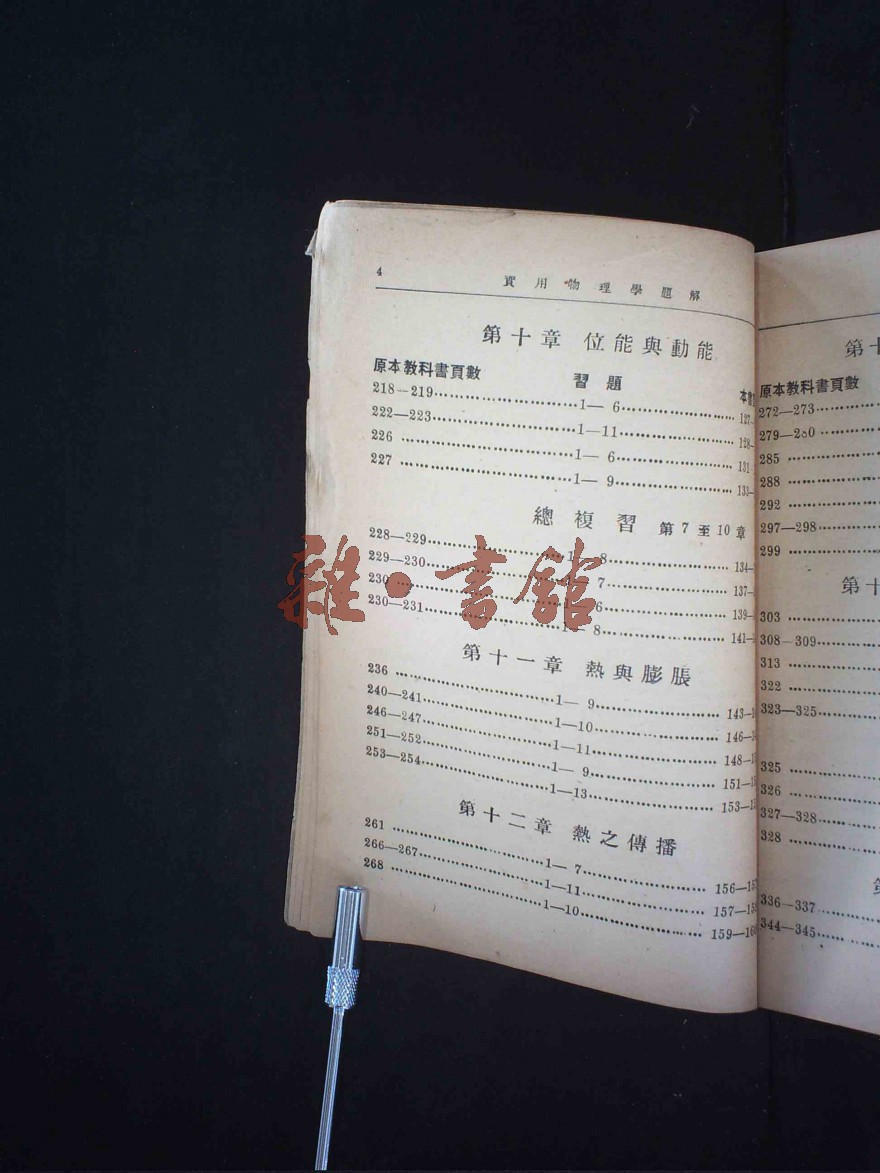 4 實用物理學題解
第十章 位能與動能
原本教科書頁數 習題 本書
218—219 1—6 127—
222—223 1—11 128—
226 1—6 131
227 1—9 133—
總複習 第7至10章
228—229 1—8 134—
229—230 7 137—
230 1—6 139—
230—231 1—8 141—
第十一章 熱與膨脹
236 1—9 143—
240—241 1—10 146—
246—247 1—11 148—
251—252 1—9 151—
253—254 1—13 153—
第十二章 熱之傳播
261 1—7 156—157
266—267 1—11 157—15
268 1—10 159—160
雜·書館
第十
原本教科書頁數
272—273
279—280
285
288
292
297—298
299
第十
303
308—309
313
322
323—325
325
326
327—328
328
336—337
344—345